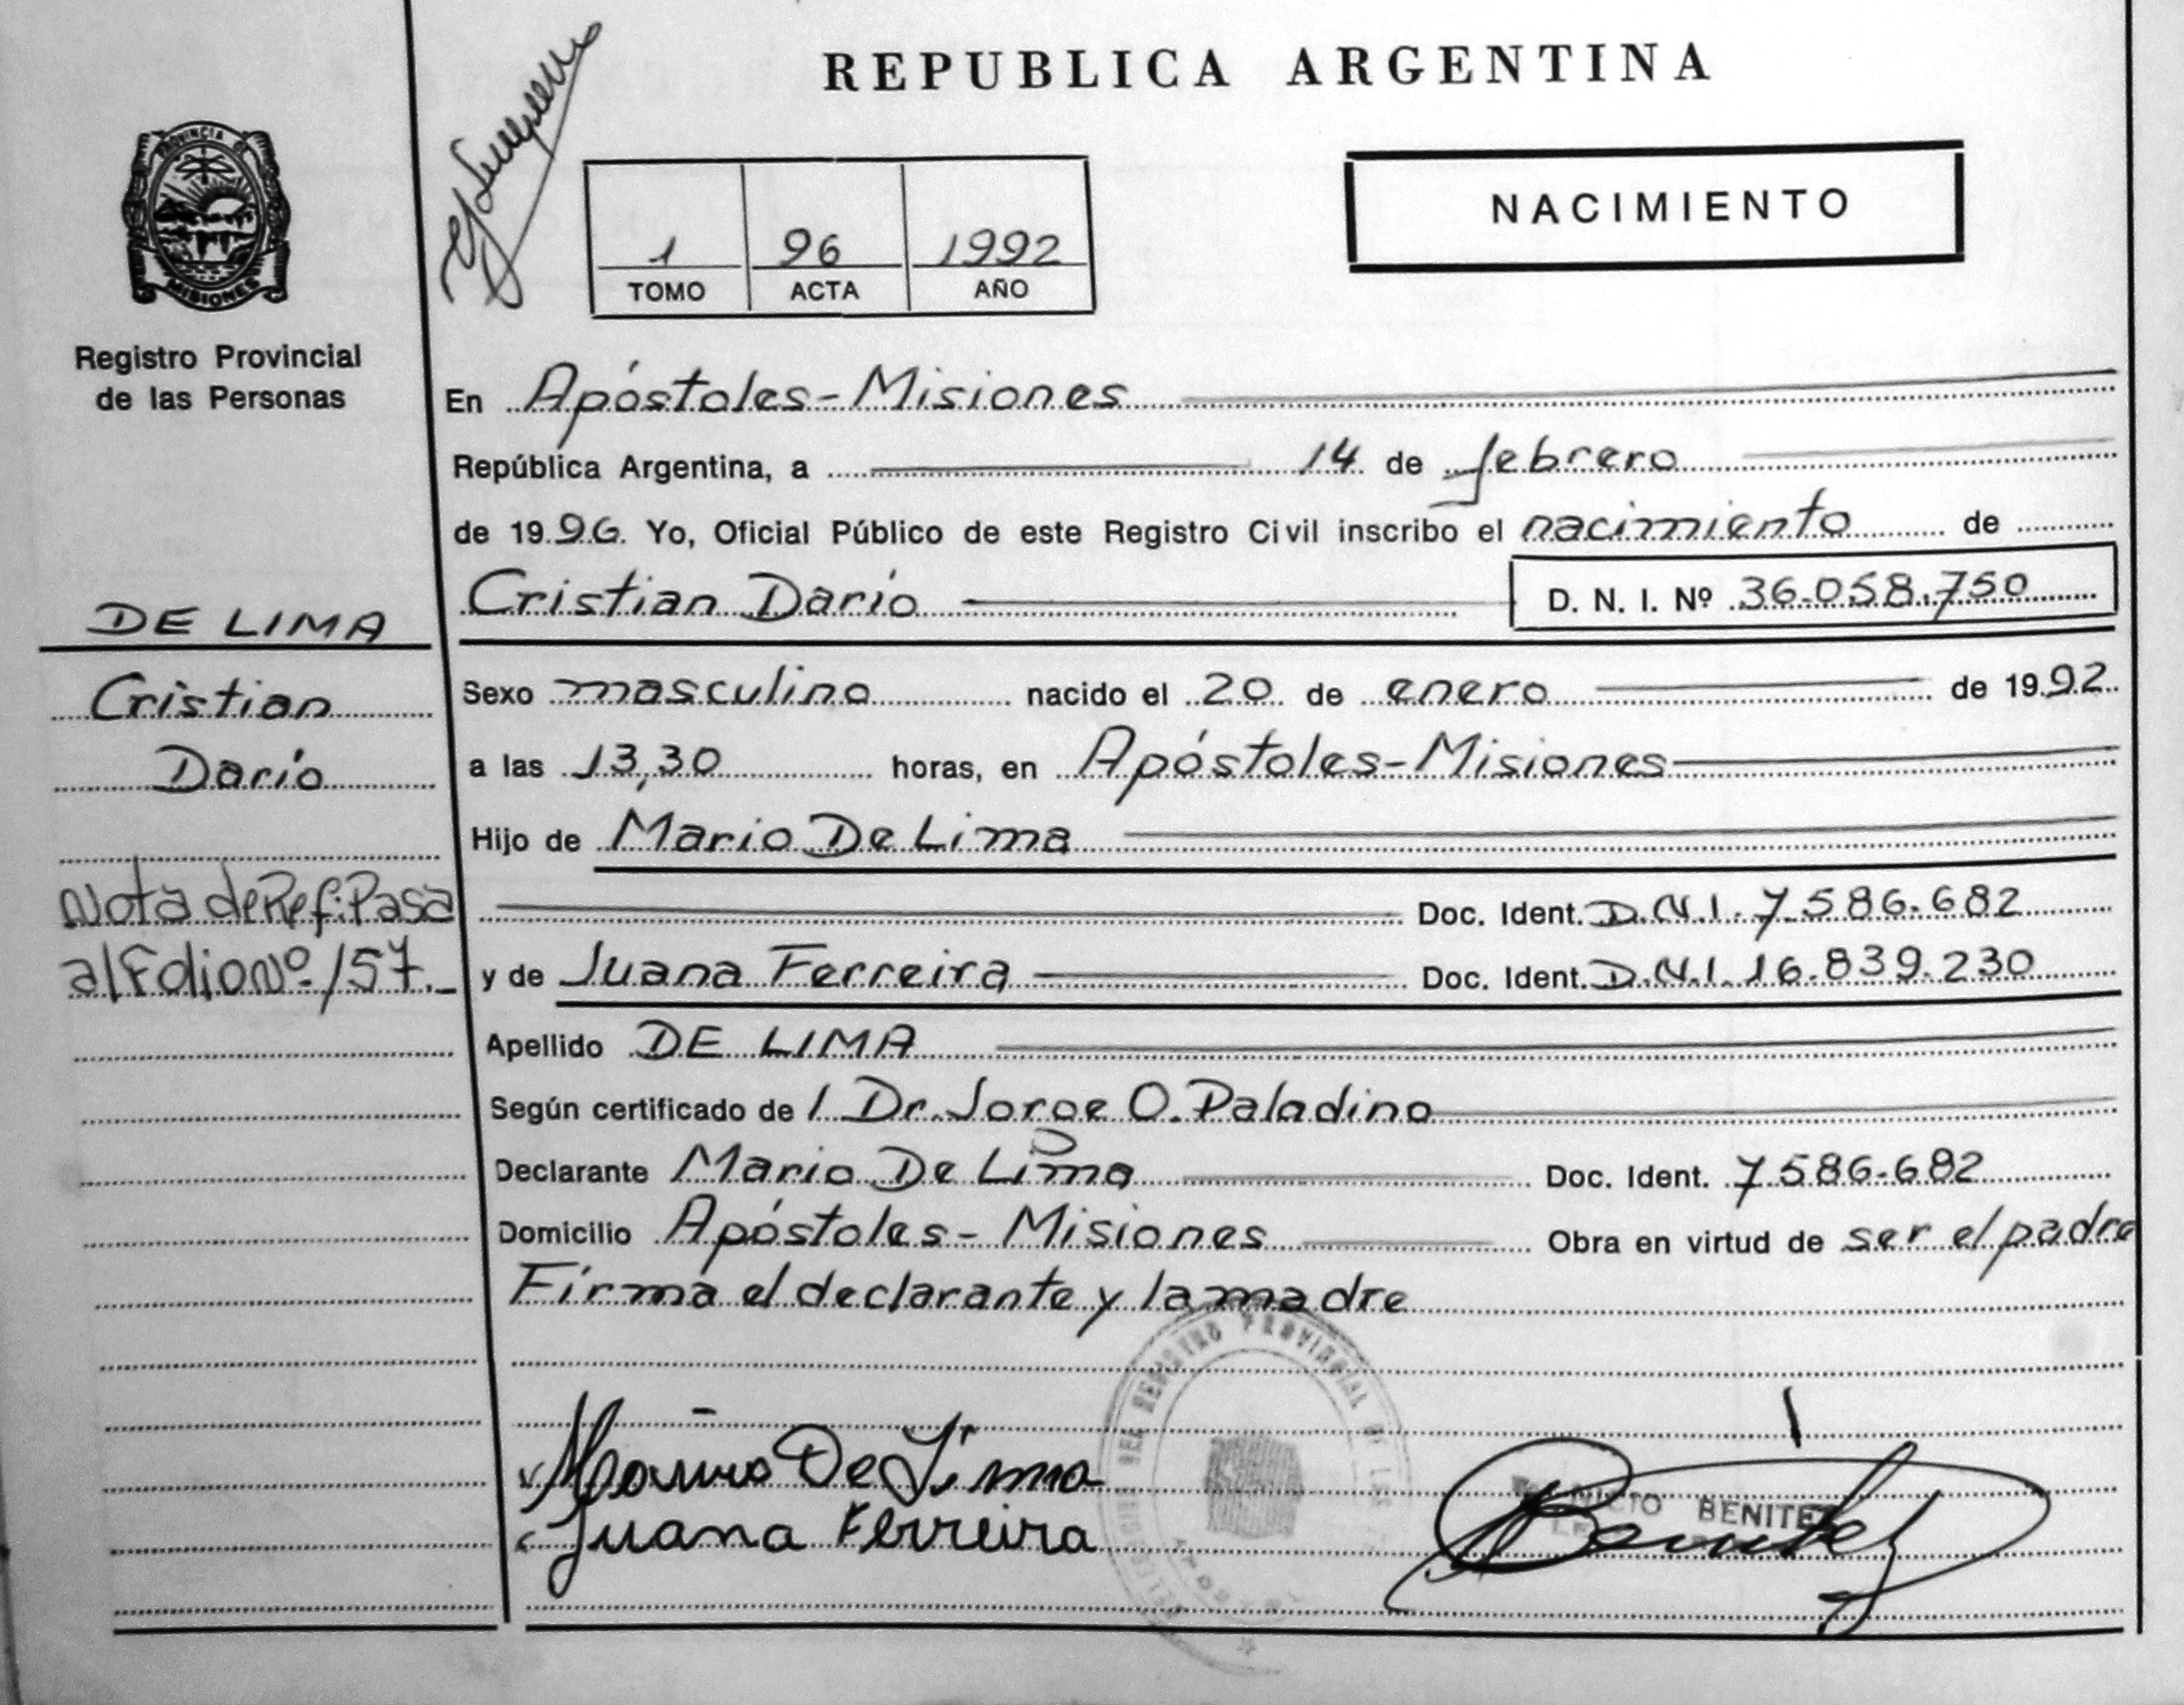 REPUBLICA ARGENTINA
PROVINCIA DE
MISIONES
Registro Provincial
de las Personas
NACIMIENTO
1 96 1992
TOMO ACTA AÑO
En Apóstoles-Misiones
República Argentina, a 14 de febrero
de 1996. Yo, Oficial Público de este Registro Civil inscribo el nacimiento de
Cristian Darío D. N. I. Nº 36.058.750
DE LIMA
Cristian
Darío
Nota de Ref: Pasa
al Folio Nº 157.
Sexo masculino nacido el 20 de enero de 1992
a las 13,30 horas, en Apóstoles-Misiones
Hijo de Mario De Lima
Doc. Ident. D.N.I. 7.586.682
y de Juana Ferreira Doc. Ident. D.N.I. 16.839.230
Apellido DE LIMA
Según certificado de l Dr. Jorge O. Paladino
Declarante Mario De Lima Doc. Ident. 7.586.682
Domicilio Apóstoles- Misiones Obra en virtud de ser el padre
Firma el declarante y la madre
REGISTRO PROVINCIAL DE LAS
Mario De Lima
BENITEZ
Juana Ferreira
Benitez